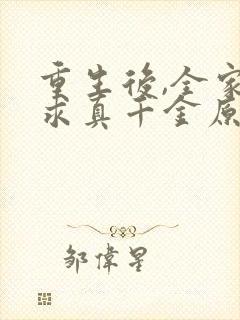 重生後,全家
求真千金原
邹偉星